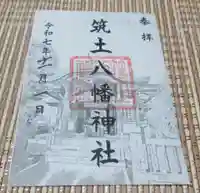 奉拝
筑土八幡神社
令和七年十一月八日